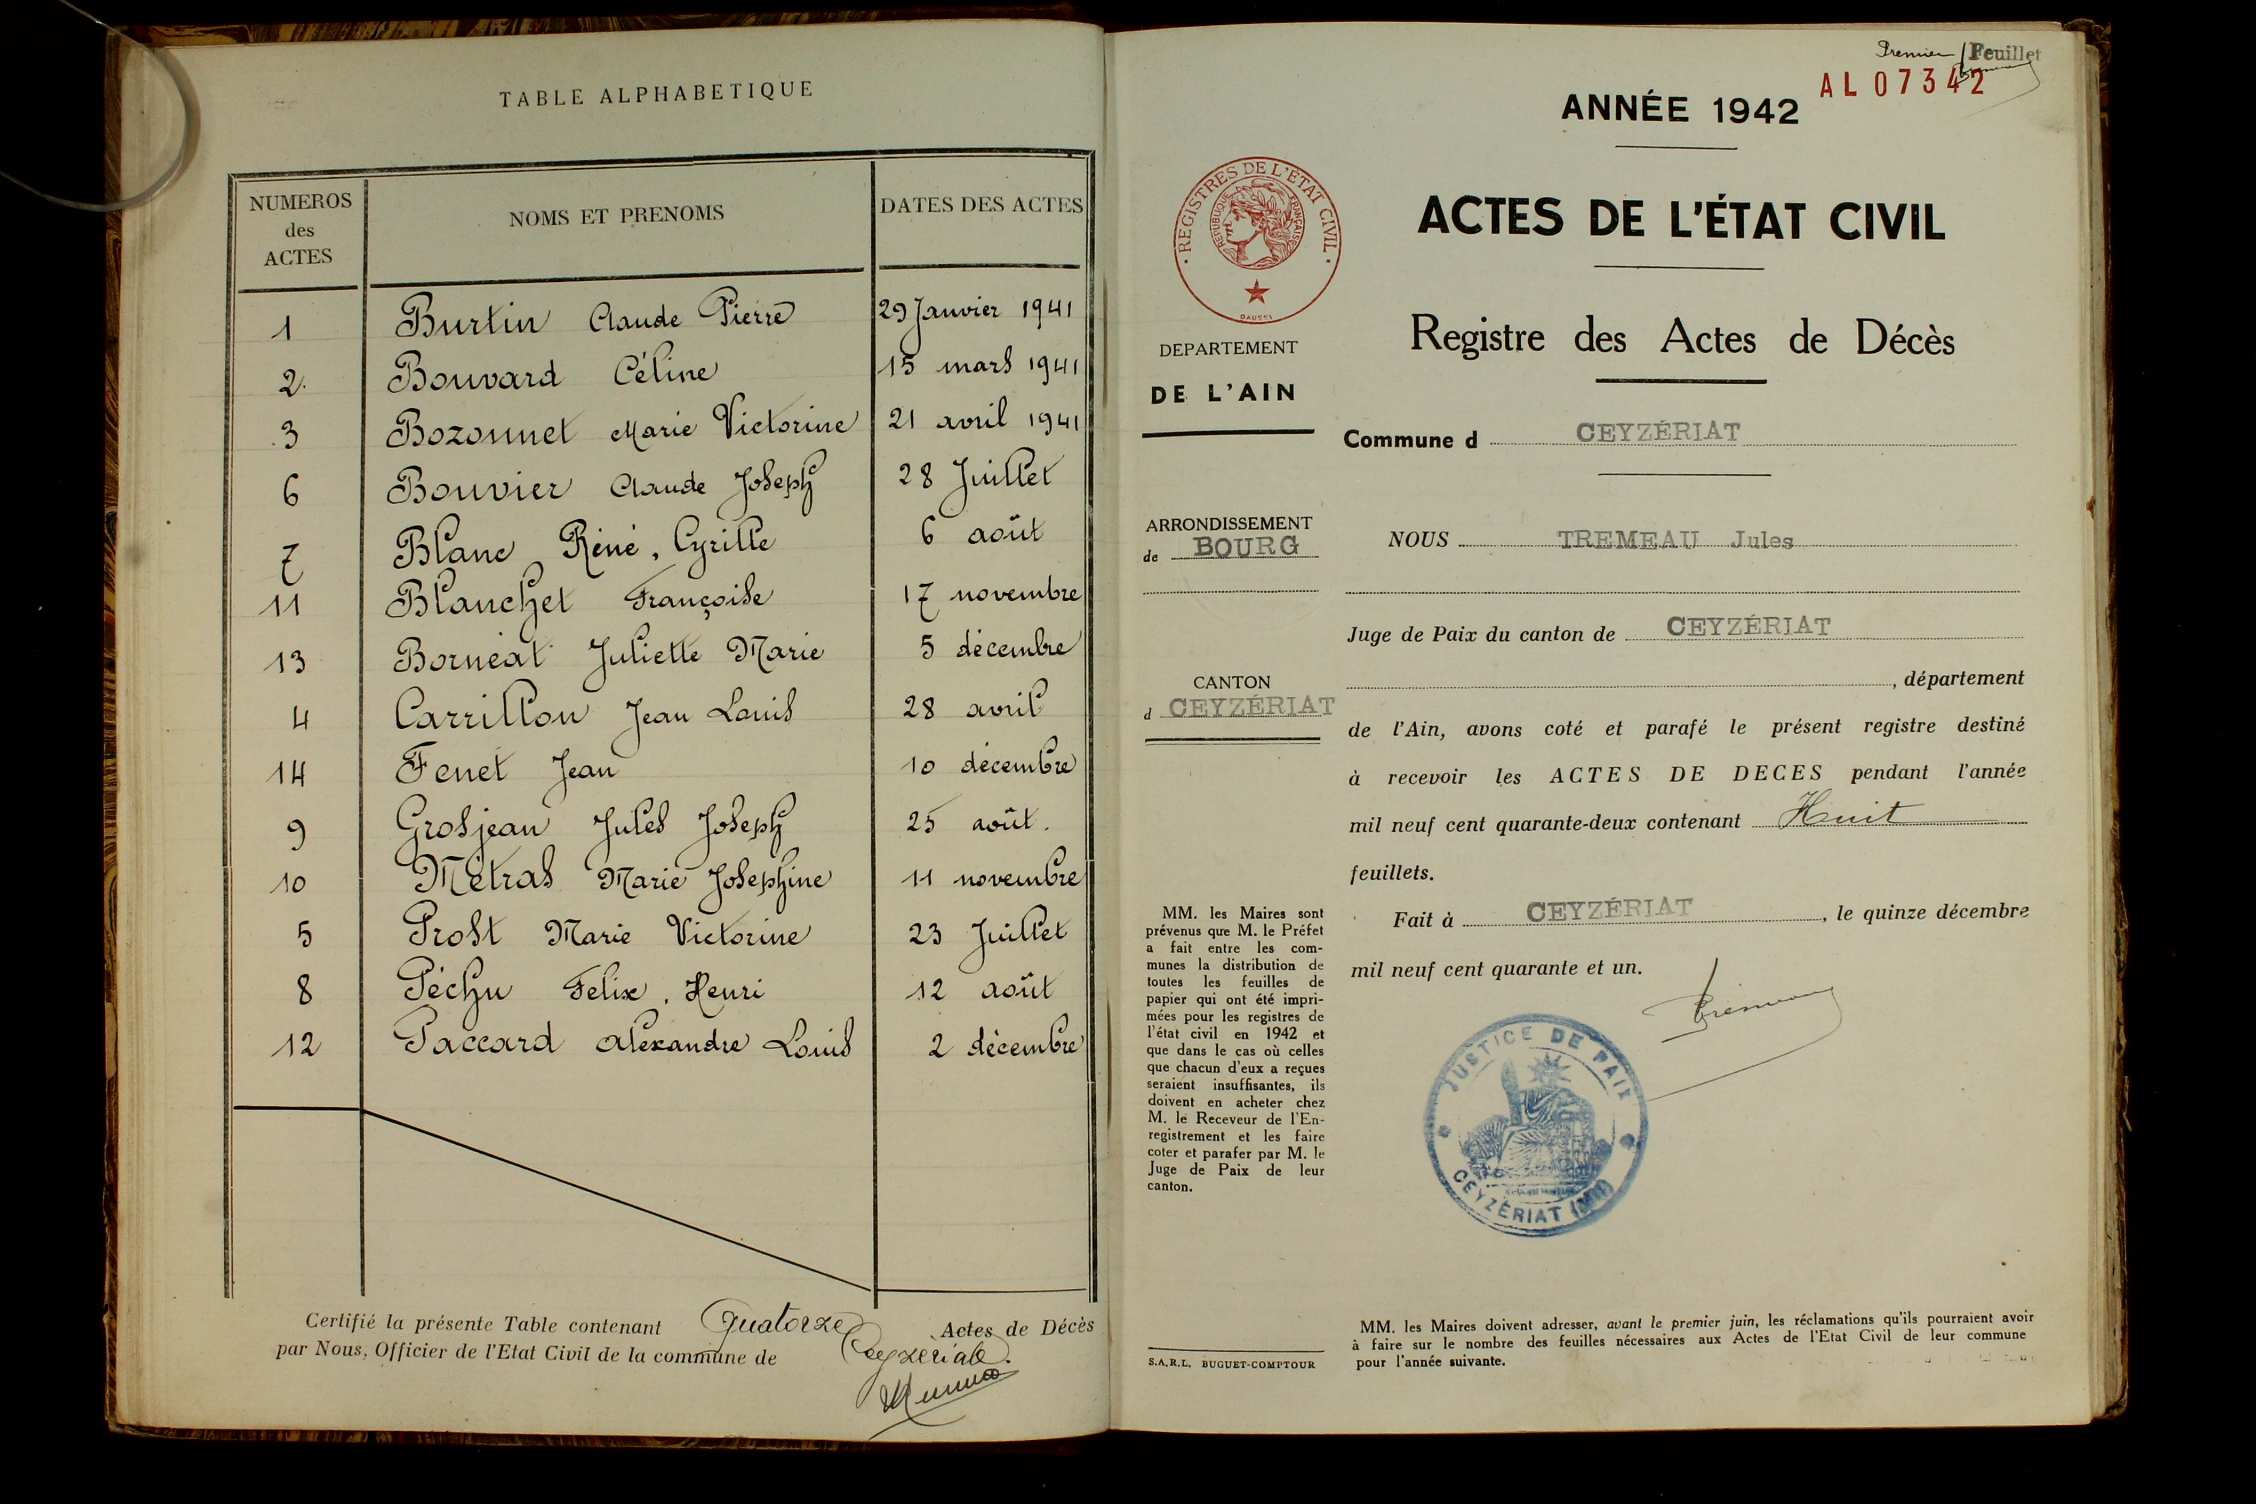 TABLE ALPHABETIQUE
NUMEROS
des
ACTES
NOMS ET PRENOMS
DATES DES ACTES
1 Burtin Claude Pierre 29 Janvier 1941
2. Bouvard Céline 15 mars 1941
3 Bozonnet Marie Victorine 21 avril 1941
6 Bouvier Claude Joseph 28 Juillet
7 Blanc Réné, Cyrille 6 août
11 Blanchet Françoise 17 novembre
13 Bornéat Juliette Marie 5 décembre
4 Carrillon Jean Louis 28 avril
14 Fenet Jean 10 décembre
9 Grosjean Jules Joseph 25 août.
10 Métras Marie Josephine 11 novembre
5 Prost Marie Victorine 23 Juillet
8 Péchu Felix, Henri 12 août
12 Paccard Alexandre Louis 2 décembre
Certifié la présente Table contenant Quatorze Actes de Décès
par Nous, Officier de l'Etat Civil de la commune de Ceyzériat.
Premier Feuillet
AL07342
ANNÉE 1942
ACTES DE L'ÉTAT CIVIL
Registre des Actes de Décès
· REGISTRES DE L'ÉTAT CIVIL ·
REPUBLIQUE FRANÇAISE
DEPARTEMENT
DE L'AIN
Commune d CEYZÉRIAT
ARRONDISSEMENT
de BOURG
NOUS TREMEAU Jules
Juge de Paix du canton de CEYZÉRIAT
CANTON
d CEYZÉRIAT
, département
de l'Ain, avons coté et parafé le présent registre destiné
à recevoir les ACTES DE DECES pendant l'année
mil neuf cent quarante-deux contenant Huit
feuillets.
Fait à CEYZÉRIAT, le quinze décembre
mil neuf cent quarante et un.
MM. les Maires sont
prévenus que M. le Préfet
a fait entre les com-
munes la distribution de
toutes les feuilles de
papier qui ont été impri-
mées pour les registres de
l'état civil en 1942 et
que dans le cas où celles
que chacun d'eux a reçues
seraient insuffisantes, ils
doivent en acheter chez
M. le Receveur de l'En-
registrement et les faire
coter et parafer par M. le
Juge de Paix de leur
canton.
Tremeau
JUSTICE DE PAIX
CEYZÉRIAT (AIN)
S.A.R.L. BUGUET-COMPTOUR
MM. les Maires doivent adresser, avant le premier juin, les réclamations qu'ils pourraient avoir
à faire sur le nombre des feuilles nécessaires aux Actes de l'Etat Civil de leur commune
pour l'année suivante.